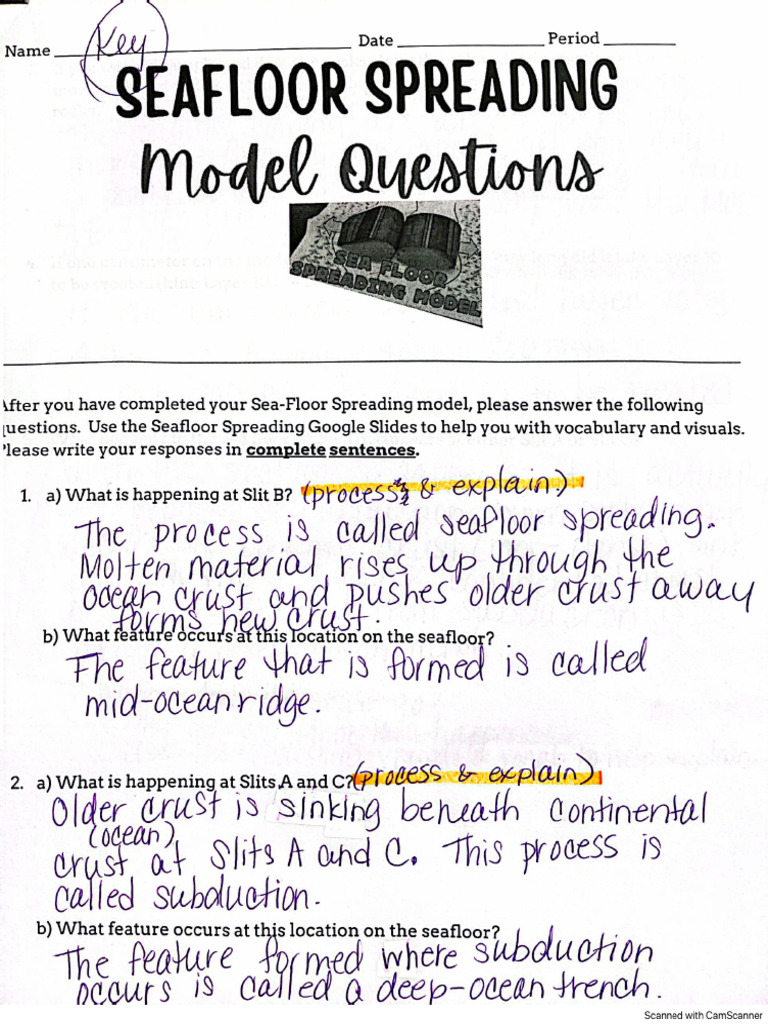 Name Key Date Period
SEAFLOOR SPREADING
Model Questions
SEA FLOOR
SPREADING MODEL
After you have completed your Sea-Floor Spreading model, please answer the following
questions. Use the Seafloor Spreading Google Slides to help you with vocabulary and visuals.
Please write your responses in complete sentences.
1. a) What is happening at Slit B? (process & explain)
The process is called seafloor spreading.
Molten material rises up through the
ocean crust and pushes older crust away
forms new crust.
b) What feature occurs at this location on the seafloor?
The feature that is formed is called
mid-ocean ridge.
2. a) What is happening at Slits A and C? (process & explain)
Older crust is sinking beneath continental
(ocean)
crust at Slits A and C. This process is
called subduction.
b) What feature occurs at this location on the seafloor?
The feature formed where subduction
occurs is called a deep-ocean trench.
Scanned with CamScanner